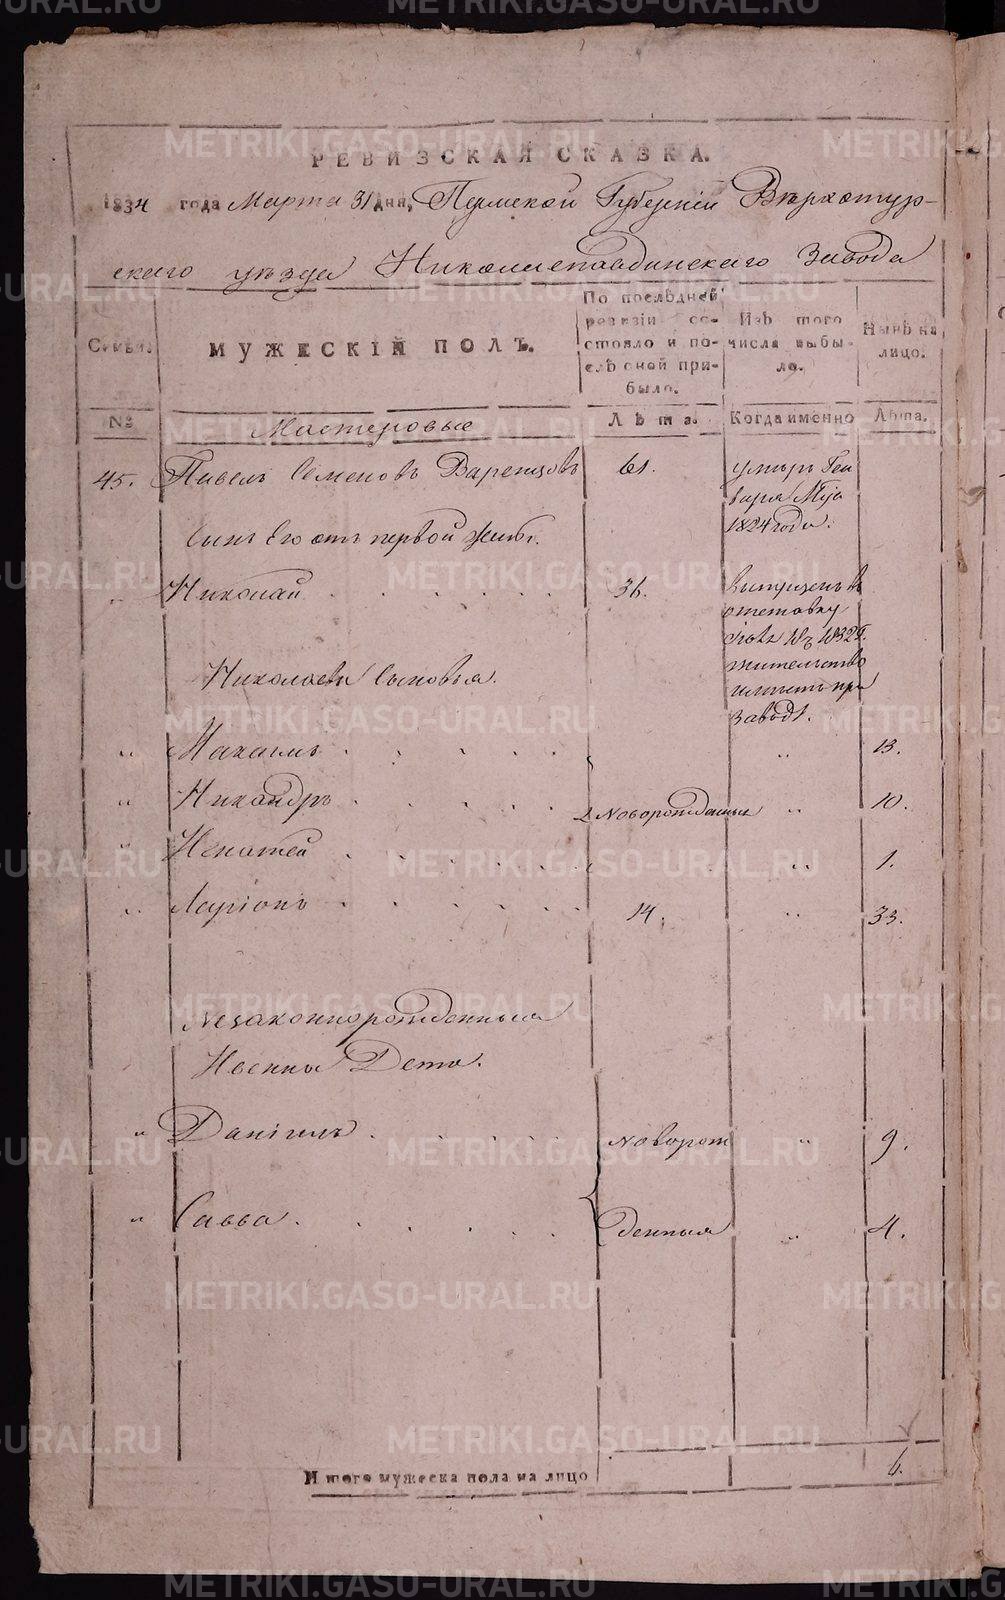 METRIKI.GASO-URAL.RU
РЕВИЗСКАЯ СКАЗКА.
1834 года Марта 31 дня, Пермской Губерніи Верхотур-
скаго уезда Николаепавдинскаго Завода
Семьи.
МУЖЕСКІЙ ПОЛЪ.
По послѣдней ревизіи состояло и послѣ оной прибыло.
Изъ того числа выбыло.
Нынѣ на лицо.
№
Мастеровые
Лѣта.
Когда именно
Лѣта.
45. Павелъ Семеновъ Варенцовъ 61. умеръ Генваря 1824 года.
Сынъ Его отъ первой Жены.
" Николай 36. выпущенъ в отставку 1832 г. жительство имеетъ при заводе.
Николаевы Сыновья.
" Михаилъ " 13.
" Никандръ Новорожденныя " 10.
" " 1.
" Ларіонъ 14. " 33.
Незаконнорожденныя
Дети.
" Даніилъ Новорож " 9.
" Савва денныя " 4.
Итого мужеска пола на лицо 6.